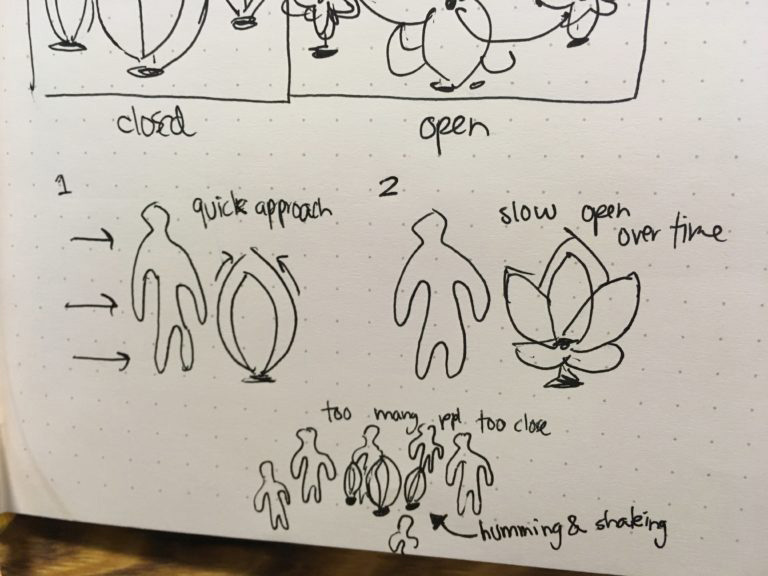 closed
open
1
quick approach
2
slow open
over time
too many ppl too close
humming & shaking